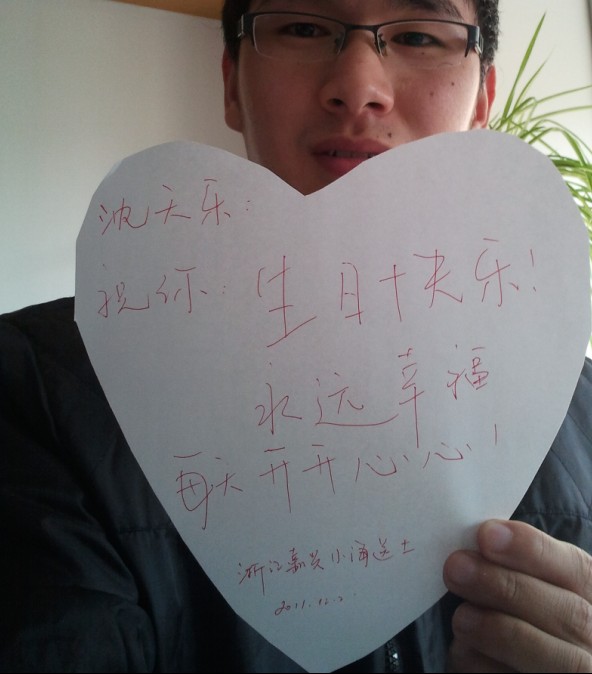 沈天乐:
祝你:生日快乐!
永远幸福
每天开开心心!
浙江嘉兴小海送上
2011.12.2.